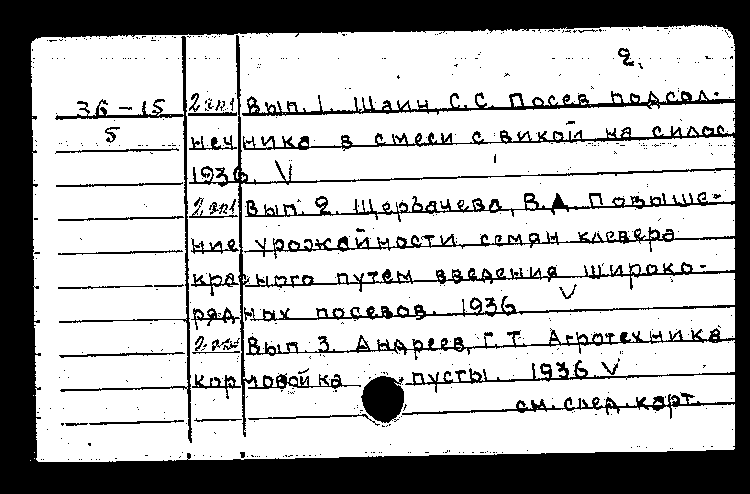 2.
36-15 2 экз Вып. 1. Шаин, С.С. Посев подсол-
5 нечника в смеси с викой на силос
1936. V
2 экз Вып. 2. Щербачева, В.Д. Повыше-
ние урожайности семян клевера
красного путем введения широко-
рядных посевов. 1936. V
2 экз Вып. 3. Андреев, Г.Т. Агротехника
кормовой ка пусты. 1936 V
см. след. карт.